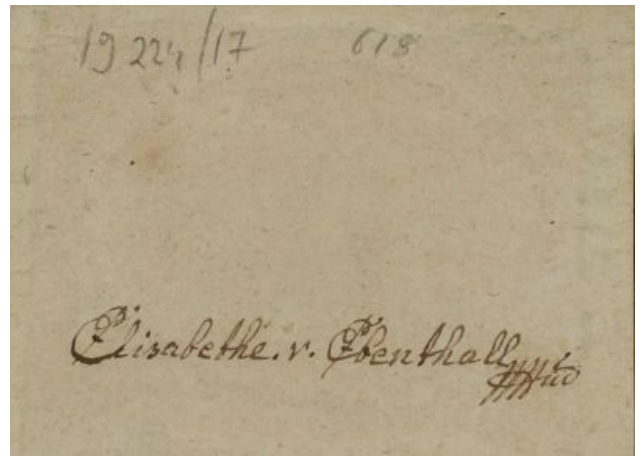 19 224/17 618
Elisabethe. v. Ebenthall